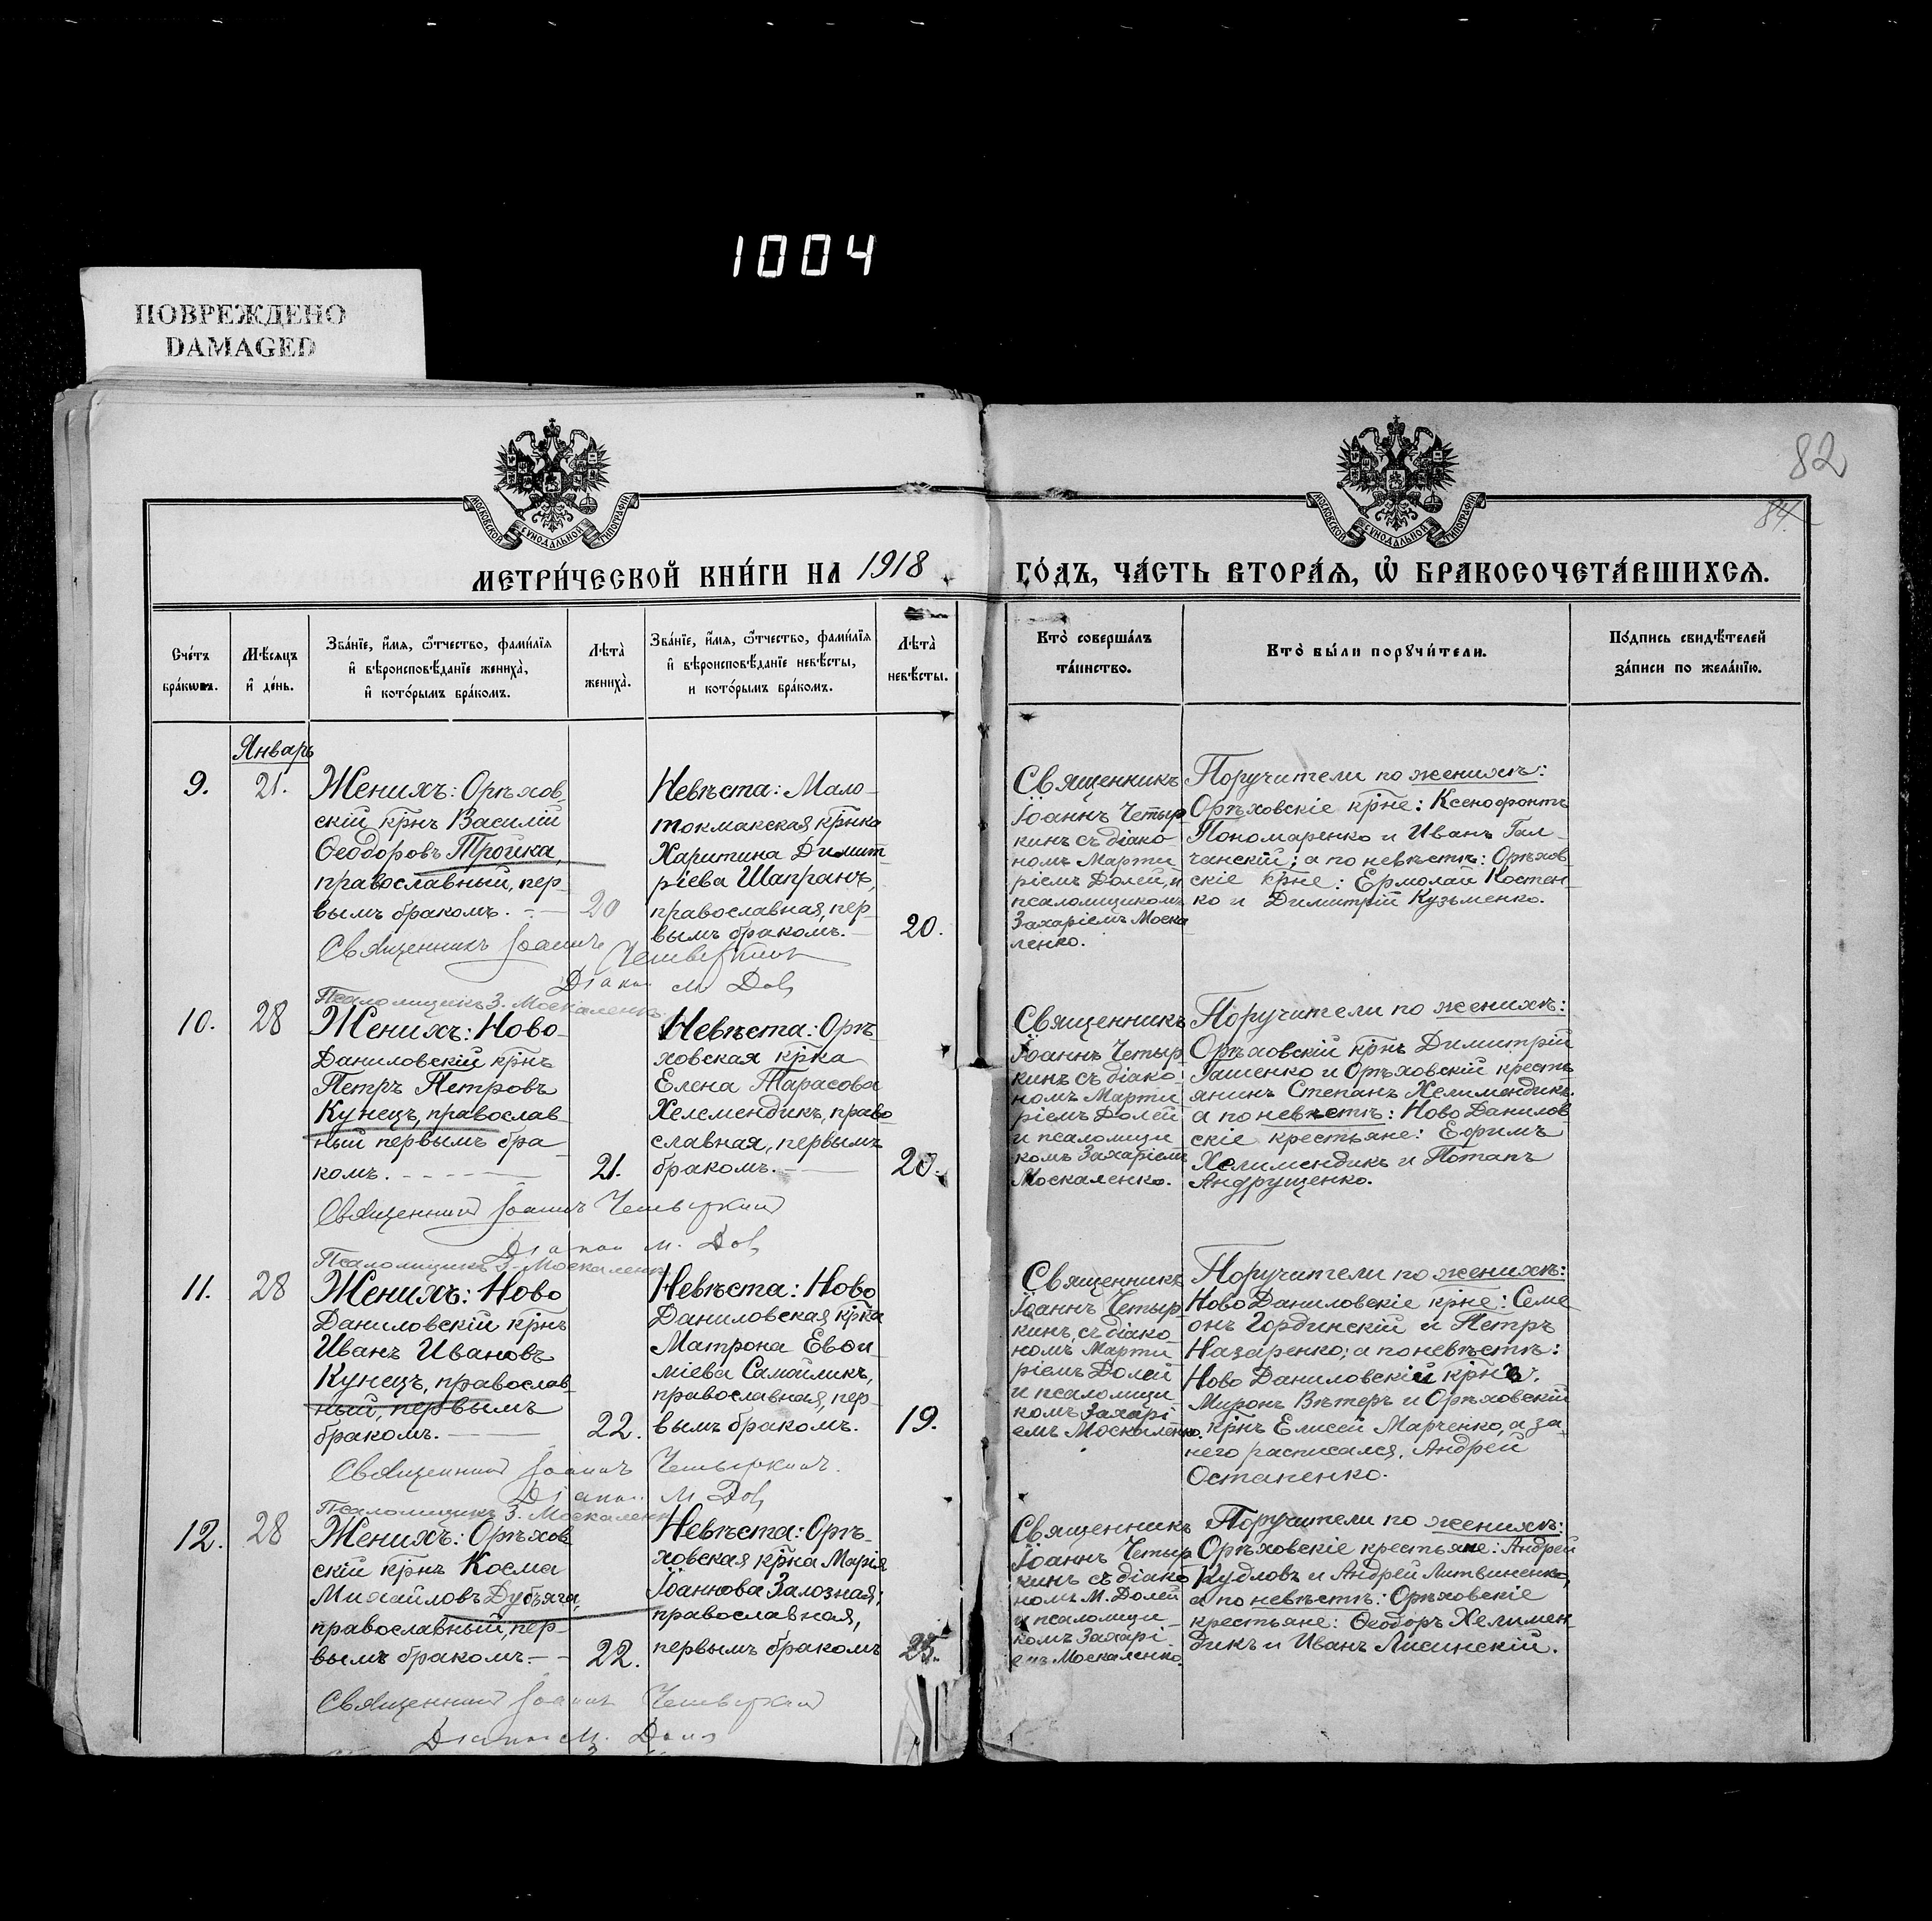 1004
ПОВРЕЖДЕНО
DAMAGED
82
84.
МОСКОВСКОЙ СѴНОДАЛЬНОЙ ТИПОГРАФІИ
МОСКОВСКОЙ СѴНОДАЛЬНОЙ ТИПОГРАФІИ
МЕТРИ́ЧЕСКОЙ КНИ́ГИ НА 1918 ГО́ДЪ, ЧА́СТЬ ВТОРА́Я, Ѡ БРАКОСОЧЕТА́ВШИХСЯ.
Сче́тъ
бра́кωвъ.
Мѣ́сяцъ
и҆ де́нь.
Зва́нїе, и҆́мя, ѻ҆́тчество, фами́лїя
и҆ вѣроисповѣ́данїе жениха̀,
и҆ кото́рымъ бра́комъ.
Лѣта̀
жениха̀.
Зва́нїе, и҆́мя, ѻ҆́тчество, фами́лїя
и҆ вѣроисповѣ́данїе невѣ́сты,
и кото́рымъ бра́комъ.
Лѣта̀
невѣ́сты.
Кто̀ соверша́лъ
та́инство.
Кто̀ бы́ли порꙋчи́тели.
По́дпись свидѣ́телей
за́писи по жела́нїю.
Январь
9.
21.
Женихъ: Орѣхов
скій крнъ Василій
Ѳеодоровъ Тройка,
православный, пер-
вымъ бракомъ.
20
Невѣста: Мало-
токмакская крнка
Харитина Димит
ріева Шапранъ,
православная, пер-
вымъ бракомъ.
20.
Священникъ
Іоаннъ Четыр
кинъ съ діако-
номъ Марти
ріемъ Долей, и
псаломщикомъ
Захаріемъ Моска
ленко.
Поручители по женихѣ:
Орѣховскіе крне: Ксенофонтъ
Пономаренко и Иванъ Гал-
чанскій; а по невѣстѣ: Орѣхов
скіе крне: Ермолай Костен-
ко и Димитрій Кузьменко.
Священникъ Іоаннъ Четыркинъ
Псаломщикъ З. Москаленко
10.
28
Женихъ: Ново-
Даниловскій крнъ
Петръ Петровъ
Кунецъ, православ
ный первымъ бра-
комъ.
21.
Невѣста: Орѣ-
ховская крка
Елена Тарасова
Хелемендикъ, право
славная, первымъ
бракомъ.
20.
Священникъ
Іоаннъ Четыр
кинъ съ діако-
номъ Марти
ріемъ Долей
и псаломщи
комъ Захаріемъ
Москаленко.
Поручители по женихѣ:
Орѣховскій крнъ Димитрій
Гашенко и Орѣховскій кресть
янинъ Степанъ Хелимендикъ.
а по невѣстѣ: Ново Данилов
скіе крестьяне: Ефимъ
Хелимендикъ и Потапъ
Андрущенко.
Священникъ Іоаннъ Четыркинъ
Псаломщикъ З. Москаленко
11.
28
Женихъ: Ново
Даниловскій крнъ
Иванъ Ивановъ
Кунецъ, православ
ный, первымъ
бракомъ.
22.
Невѣста: Ново
Даниловская крка
Матрона Евѳи
міева Самойликъ,
православная, пер-
вымъ бракомъ.
19.
Священникъ
Іоаннъ Четыр
кинъ, съ діако-
номъ Марти
ріемъ Долей
и псаломщи
комъ Захарі-
емъ Москаленко.
Поручители по женихѣ:
Ново Даниловскіе крне: Семе
онъ Гординскій и Петръ
Назаренко; а по невѣстѣ:
Ново Даниловскій крнъ:
Миронъ Вѣтеръ и Орѣховскій
крнъ Елисей Марченко, а за
него расписался, Андрей
Остапенко.
Священникъ Іоаннъ Четыркинъ.
Псаломщикъ З. Москаленко
12.
28
Женихъ: Орѣхов
скій крнъ Косма
Михайловъ Дубяга,
православный, пер-
вымъ бракомъ.
22.
Невѣста: Орѣ-
ховская крка Марія
Іоаннова Залозная;
православная,
первымъ бракомъ
23.
Священникъ
Іоаннъ Четыр
кинъ съ діако
номъ М. Долей
и псаломщи-
комъ Захарі-
емъ Москаленко.
Поручители по женихѣ:
Орѣховскіе крестьяне: Андрей
Кудловъ и Андрей Литвиненко,
а по невѣстѣ: Орѣховскіе
крестьяне: Ѳеодоръ Хелимен
дикъ и Иванъ Лисинскій.
Священникъ Іоаннъ Четыркинъ